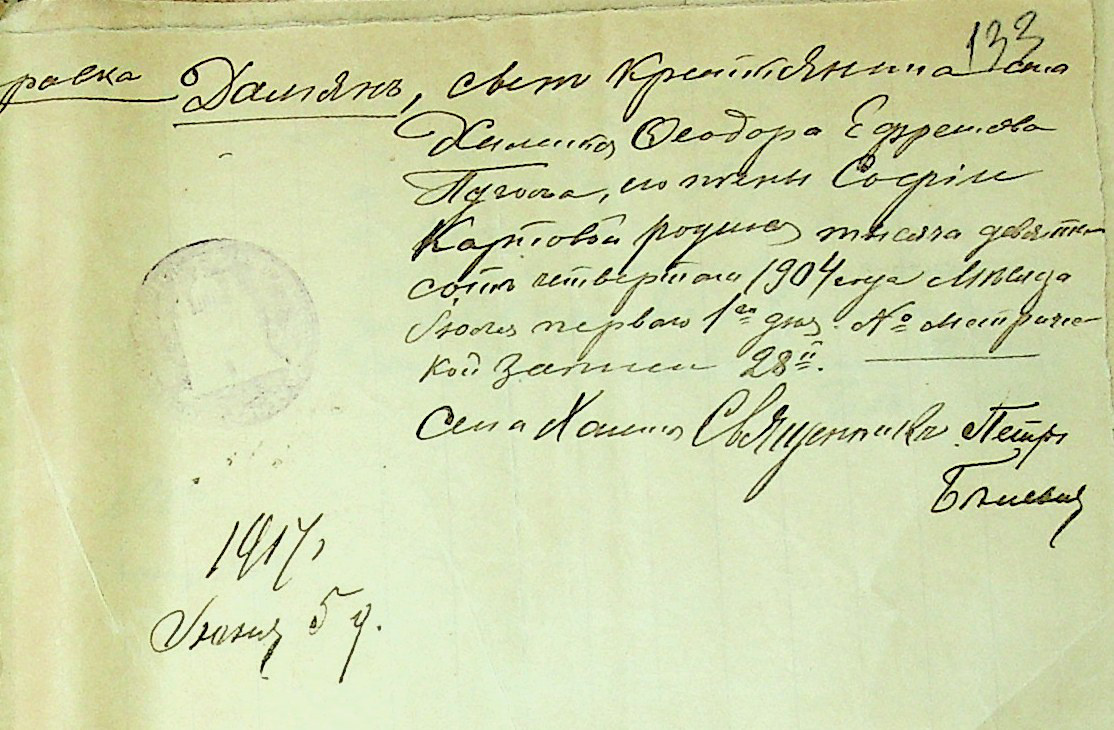 133
равка Дамианъ, сынъ крестьянина села
Ѳеодора Ефремова
и жены Софіи
Карповой родился тысяча девять
сотъ четвертаго 1904 года Мѣсяца
Іюля перваго 1го дня. № метричес-
кой записи 28й.
села Священникъ Петръ
1917г
Іюня 5 д.